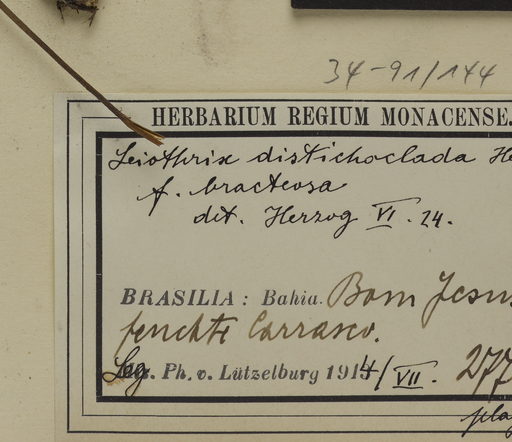 34-91/144
HERBARIUM REGIUM MONACENSE.
Leiothrix distichoclada He
f. bracteosa
det. Herzog VI. 24.
BRASILIA: Bahia. Bom Jesus
feuchte Carrasco.
Leg. Ph. v. Lützelburg 1914/VII. 277